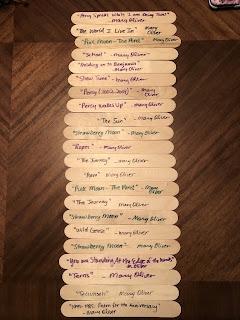 "Percy Speaks While I am Doing Taxes"
- Mary Oliver
"The World I Live In" - Mary
Oliver
"Pink Moon - The Pond" - Mary
Oliver
"School" - Mary Oliver
"Holding on to Benjamin"
- Mary Oliver
"Show Time" - Mary Oliver
"Percy (2002-2009)" - Mary Oliver
"Percy Wakes Up" - Mary Oliver
"The Sun" - Mary Oliver
"Strawberry Moon" - Mary Oliver
"Roses" - Mary Oliver
"The Journey" - Mary Oliver
- Mary Oliver
"Pink Moon - The Pond" - Mary
Oliver
"The Journey" - Mary Oliver
"Strawberry Moon" - Mary Oliver
"Wild Geese" - Mary Oliver
"Strawberry Moon" - Mary Oliver
"You are Standing At the Edge of the Woods"
"Terns" - Mary Oliver
- Mary Oliver
Poem for the Anniversary"
- Mary Oliver